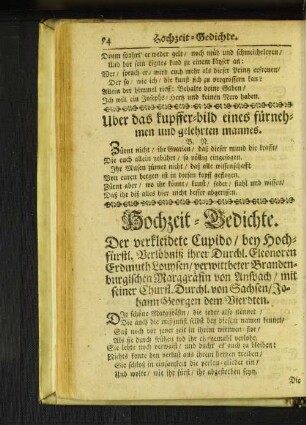 54 Hochzeit-Gedichte.
Drum suchet er weder gelt/ noch müh und schmeicheleyen/
Und bot sein eignes kind zu einem
Der so/ wie ich/ die kunst sich zu vergnüssen
Allein der himmel rieff: Behalte deine Gaben/
Ich will ein Josephs-Hertz und keinen Nero haben.
Uber das kupffer-bild eines fürneh-
men und gelehrten mannes.
B. N.
Zürnt nicht/ ihr Gratien/ daß dieser mund die künste/
Die euch allein gebühret/ so völlig eingesogen.
Ihr Musen zürnet nicht/ daß alle wissenschafft
Von euren bergen ist in diesen kopff gezogen.
Zürnt aber/ wo ihr könnt/ kunst/ feder/ stahl und wissen/
Daß ihr diß alles hier nicht besser abgerissen.
Hochzeit-Gedichte.
Der verkleidete Cupido/ bey Hoch-
fürstl. Verlöbniß ihrer Durchl. Eleonoren
Erdmuth Louysen/ verwitbeter Branden-
burgischen Marggräfin von Anspach/ mit
seiner Churfl. Durchl. von Sachsen/ Jo-
hann Georgen dem Vierdten.
Die schöne Marggräfin/ die jeder also nennet/
Die auch die mißgunst selbst bey diesem namen kennet/
Saß noch vor jener zeit in ihrem wittwen-flor/
Als sie durch frühen tod ihr eh-gemahl verlohr.
Sie lebte noch vermält/ und dacht' es auch zu bleiben:
Nichts konte den verlust aus ihrem hertzen treiben/
Sie schloß in einsamkeit die perlen-glieder ein/
Und wolte/ wie ihr fürst/ ihr abgestorben seyn.
Die